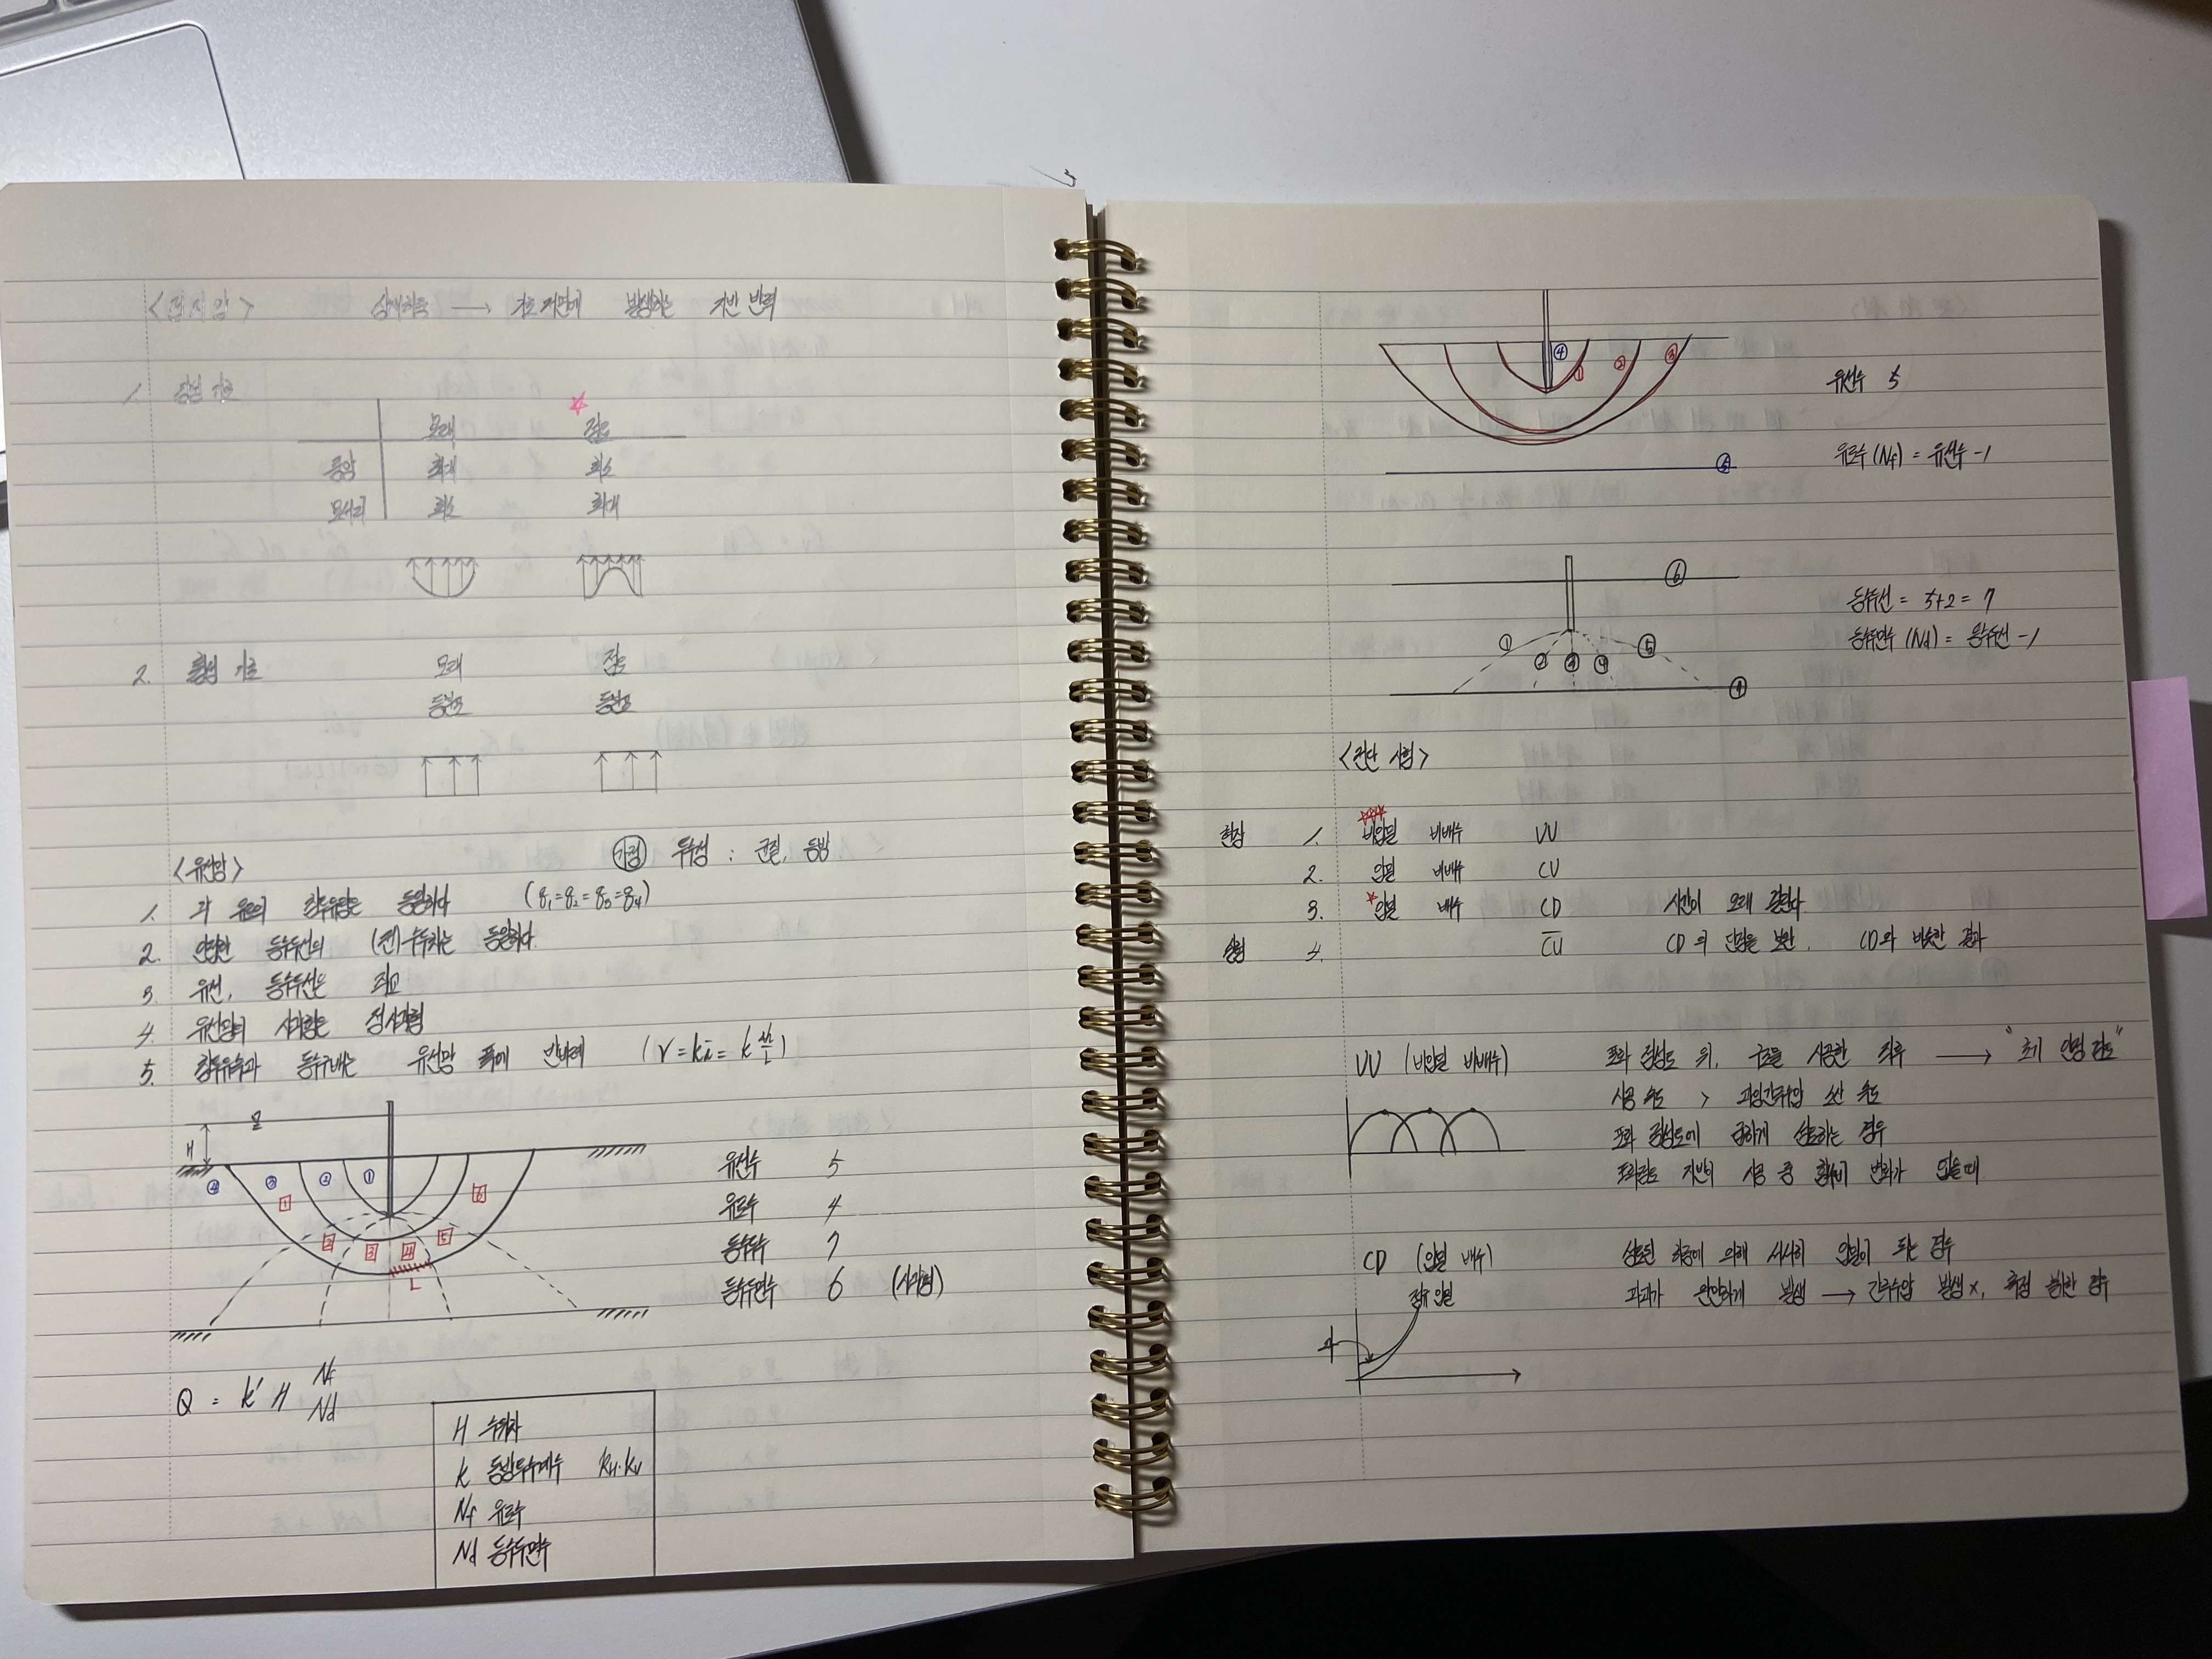 <접지압> 상재하중 → 기초저면에 발생하는 지반 반력
1. 강성 기초
모래 점토
중앙 최대 최소
모서리 최소 최대
2. 휨성 기초 모래 점토
등분포 등분포
<유선망> 가정 투수성 : 균질, 등방
1. 각 유로의 침투유량은 동일하다 (q₁=q₂=q₃=q₄)
2. 인접한 등수두선의 (전)수두차는 동일하다.
3. 유선, 등수두선은 직교
4. 유선망의 사각형은 정사각형
5. 침투유속과 동수구배는 유선망 폭에 반비례 (V=ki=k Δh/L)
H
④ ③ ② ①
1 2 3 4 5 6
L
유선수 5
유로수 4
등수두수 7
등수두면수 6 (사각형)
Q = k' H Nf/Nd
H 수위차
k 등방투수계수 kH·kV
Nf 유로수
Nd 등수두면수
④ ① ② ③
유선수 5
유로수 (Nf) = 유선수 -1
⑤
⑥
등수두선 = 5+2 = 7
등수두면수 (Nd) = 등수두선 -1
① ② ③ ④ ⑤
⑦
<전단 시험>
현장 1. 비압밀 비배수 UU
2. 압밀 비배수 CU
3. 압밀 배수 CD 시간이 오래 걸린다.
실험 4. C̅U̅ CD의 단점을 보완, CD와 비슷한 결과
UU (비압밀 비배수) 포화 점성토 위, 구조물 시공한 직후 → "초기 안정 검토"
시공 속도 > 과잉간극수압 소산 속도
포화 점성토에 급하게 성토하는 경우
포화점토 지반의 시공 중 함수비 변화가 없을때
CD (압밀 배수) 성토된 하중에 의해 서서히 압밀이 되는 경우
파괴가 완만하게 발생 → 간극수압 발생×, 측정 불한 경우